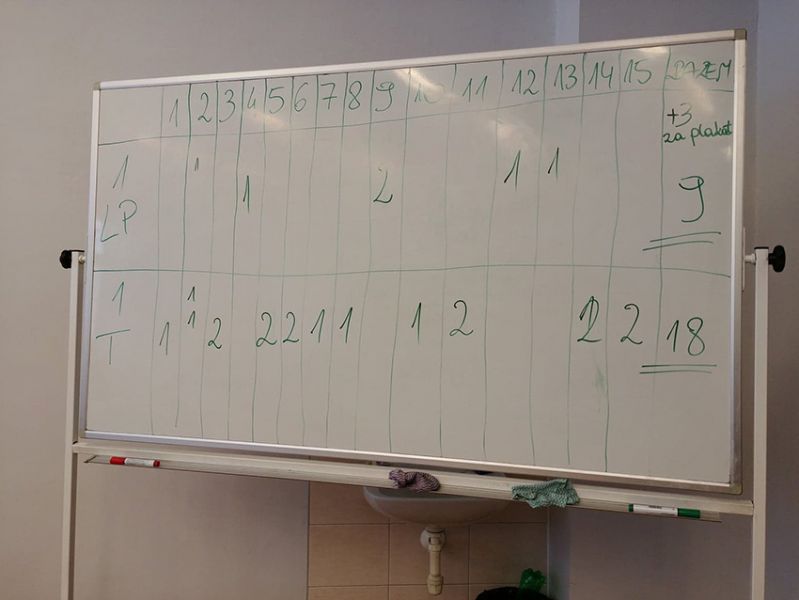 1 2 3 4 5 6 7 8 9 10 11 12 13 14 15 RAZEM
+3
za plakat
1 1 1 2 1 1 9
LP
1 1
1 1 2 2 2 1 1 1 2 2 2 18
T